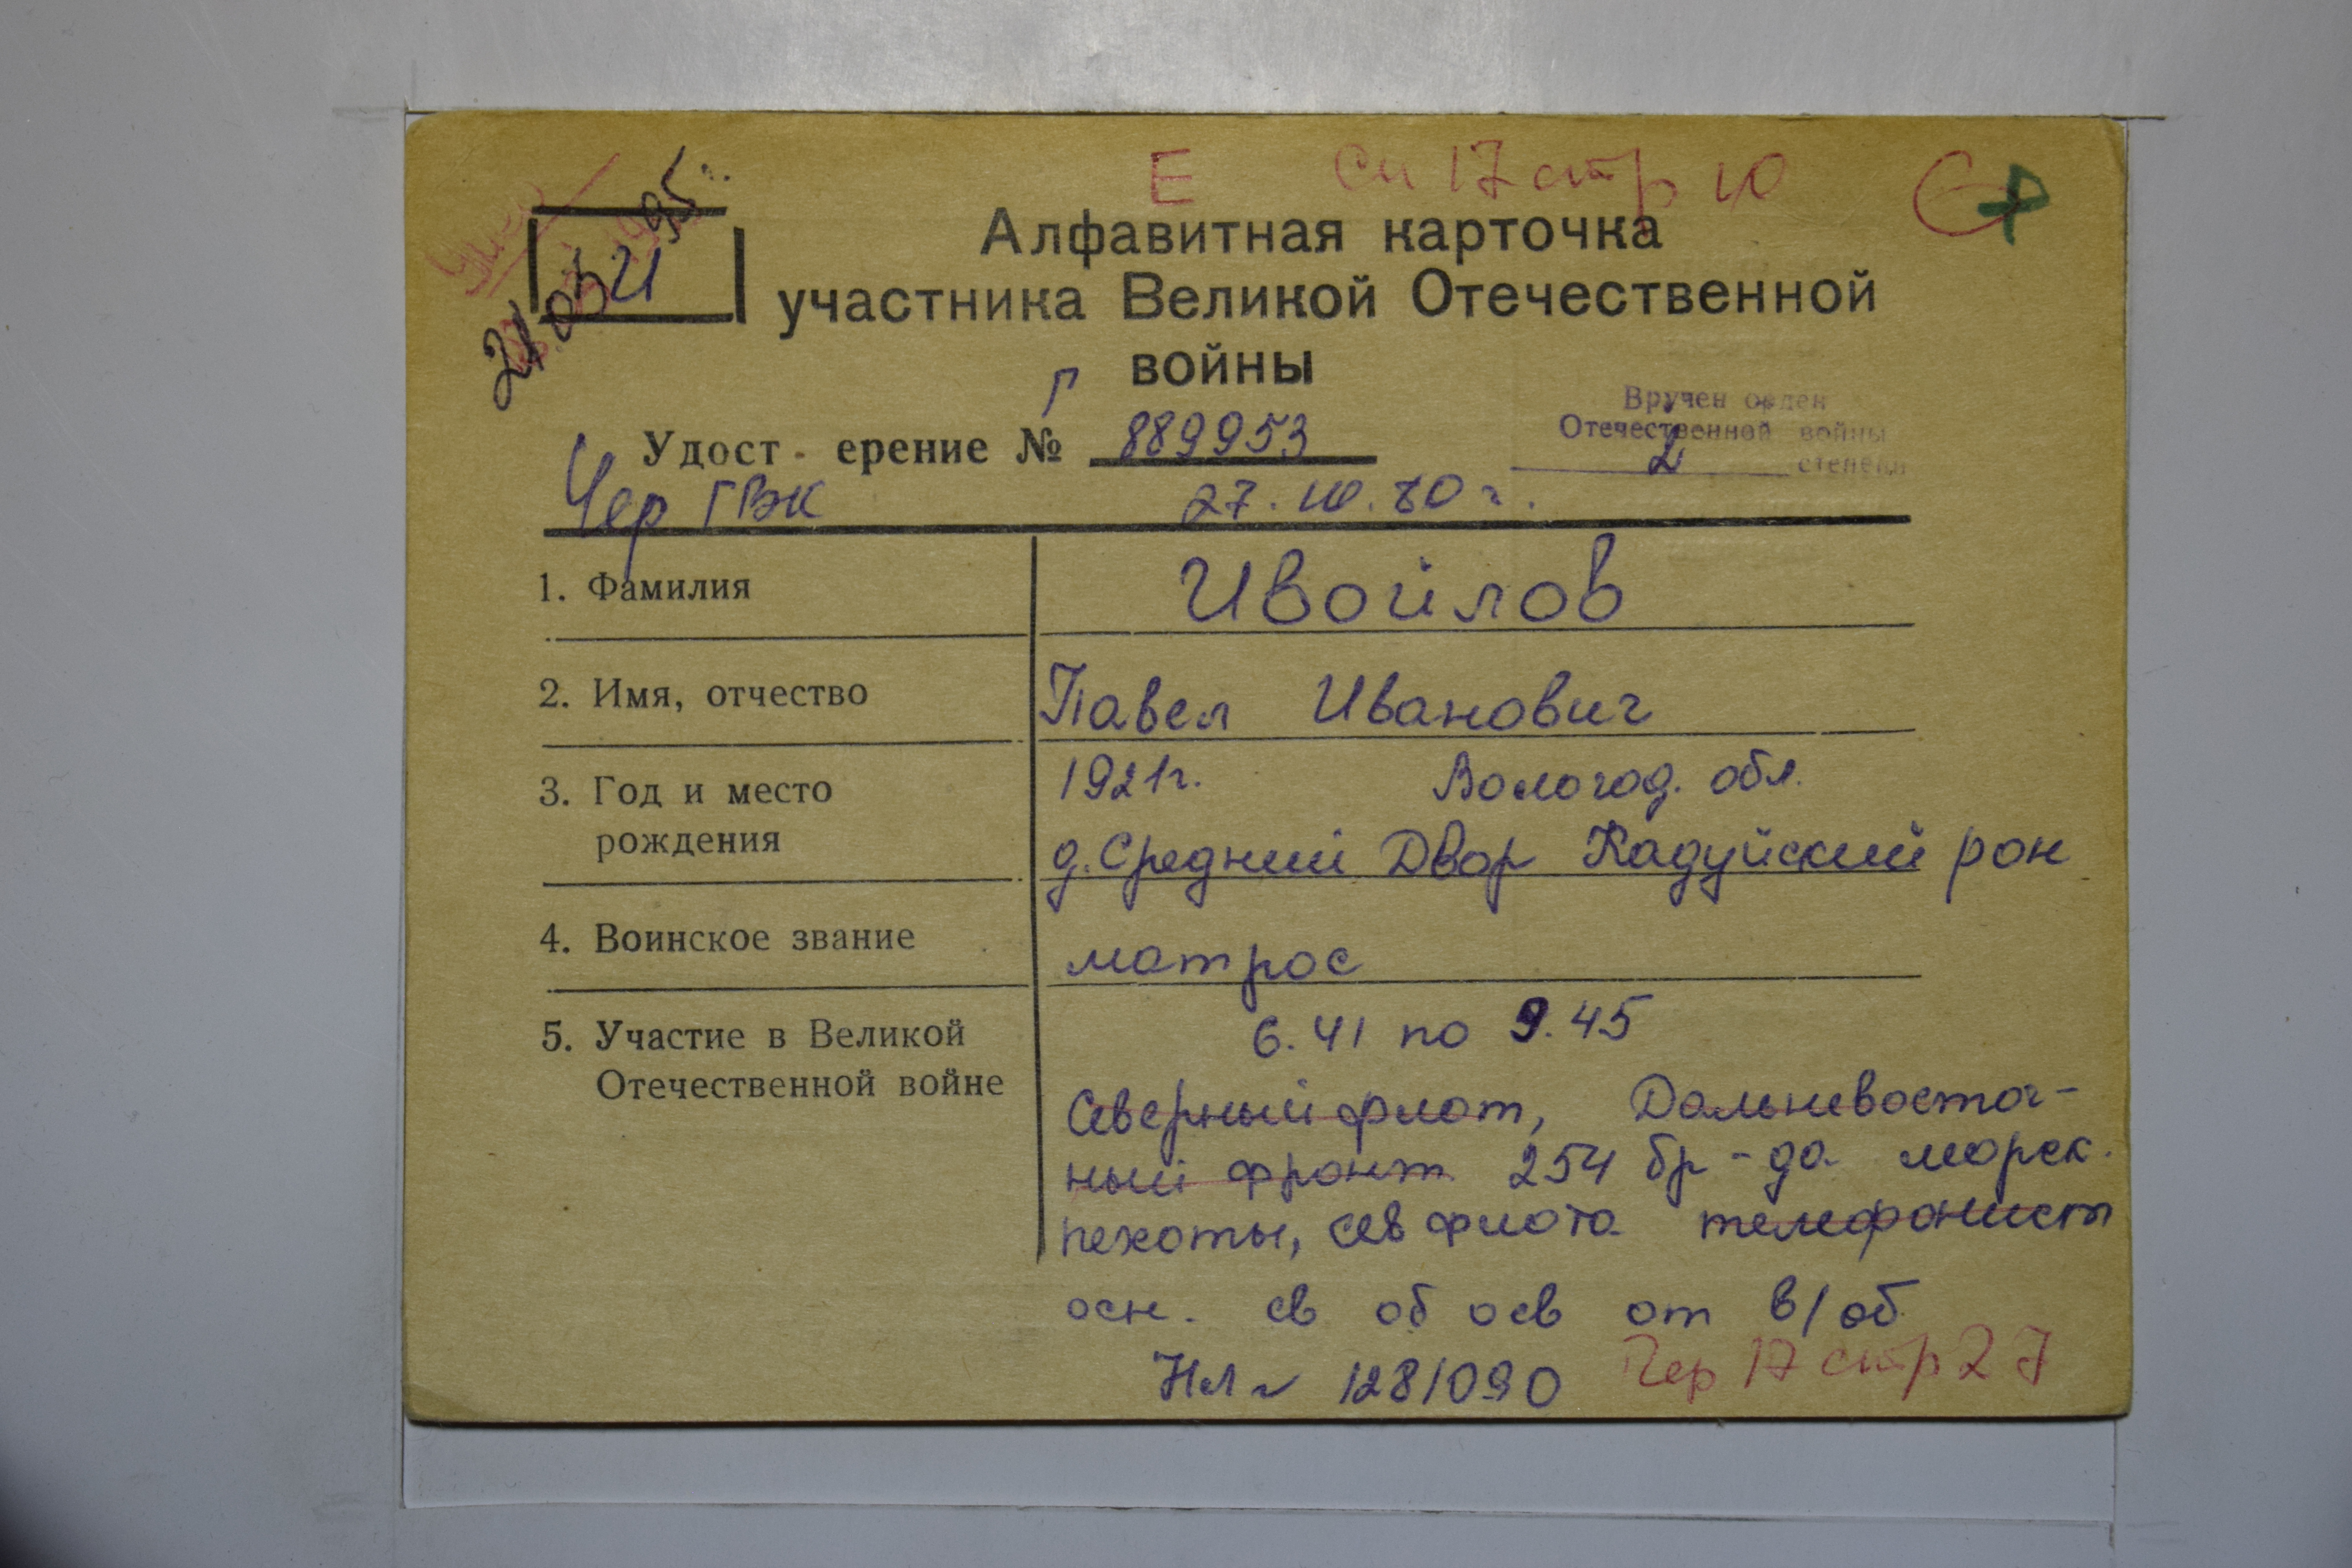 Е сп 17 стр 10
21.03.95
И
Алфавитная карточка
участника Великой Отечественной
войны
Удост ерение № Г 889953
Вручен орден
Отечественной войны
2 степени
Чер ГВК 27.10.80 г.
1. Фамилия Ивойлов
2. Имя, отчество Павел Иванович
3. Год и место 1921г. Вологод. обл.
рождения д. Средний Двор Кадуйский рон
4. Воинское звание матрос
5. Участие в Великой 6.41 по 9.45
Отечественной войне Северный флот, Дальневосточ-
ный фронт 254 бр-да морск.
пехоты, сев флота телефонист
осн. св об осв от в/об.
НЛ № 1281090 Чер 17 стр 27